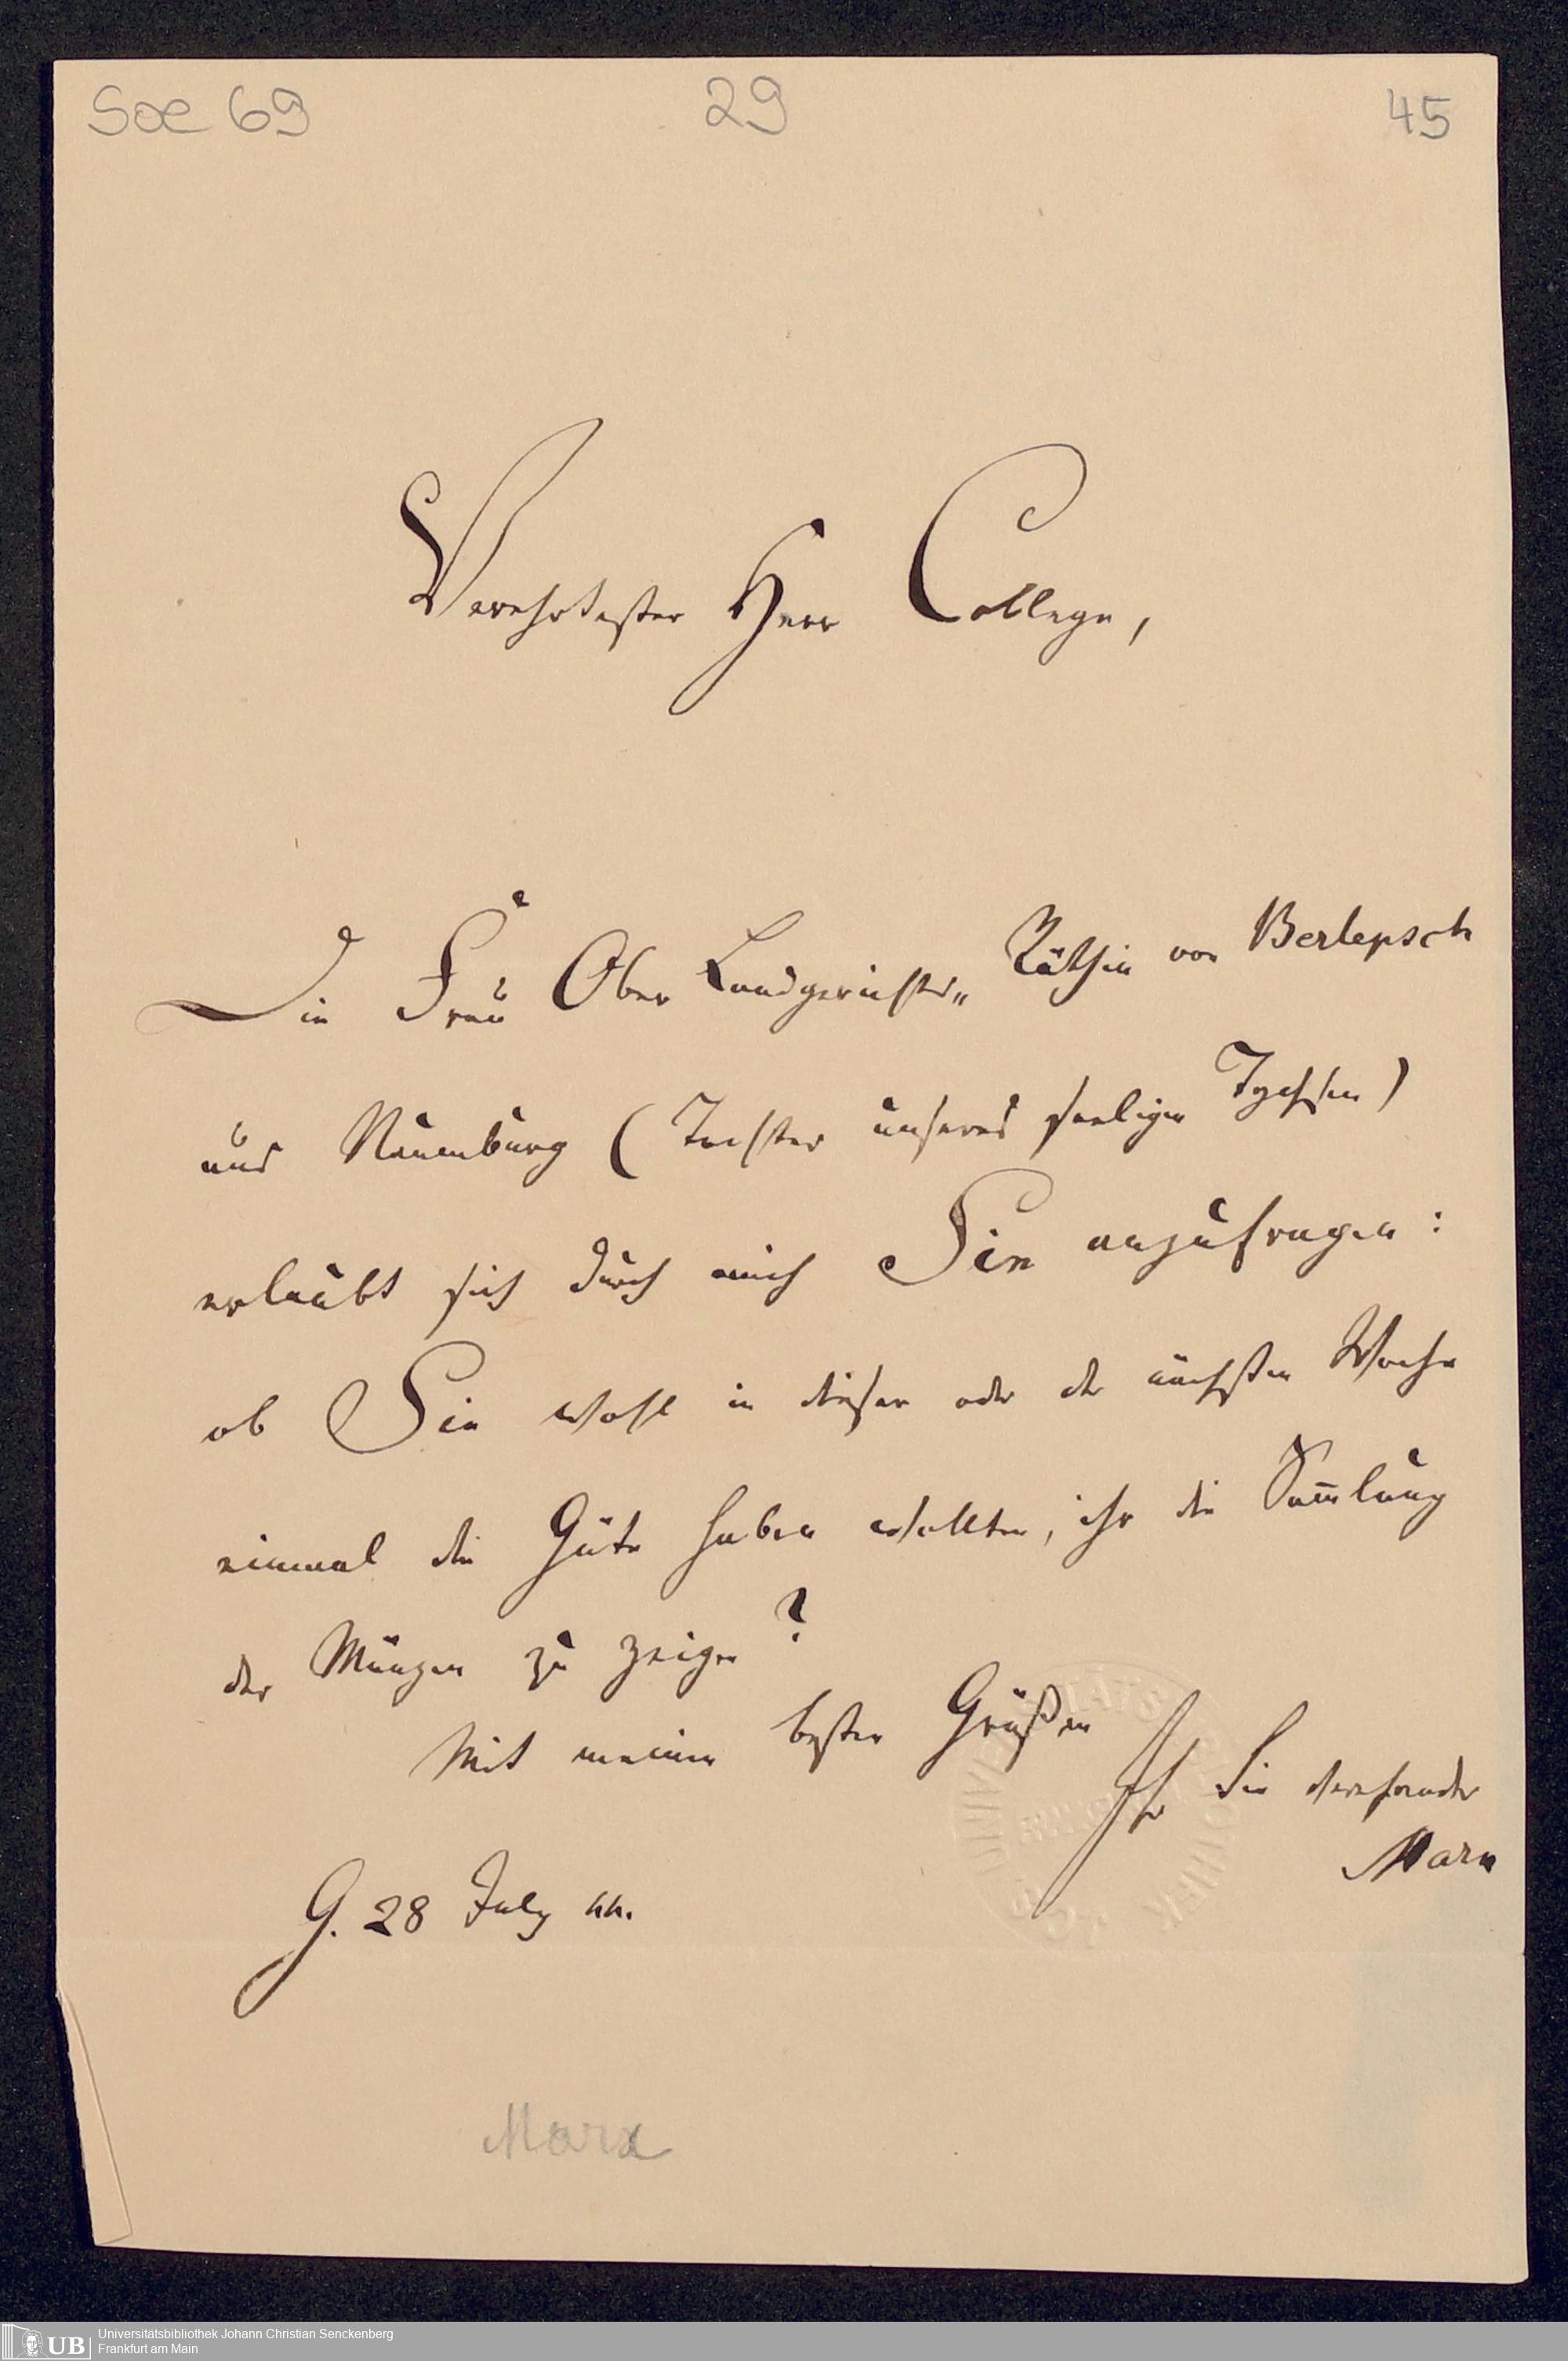 Soe 69
29
45
Verehrtester Herr College,
Die Frau Ober Landgerichts„ Räthin von Berlepsch
aus Naumburg (Tochter unseres seeligen Tychsen)
erlaubt sich durch mich Sie anzufragen:
ob Sie wohl in dieser oder der nächsten Woche
einmal die Güte haben wollten, ihr die Sam̅lung
der Münzen zu zeigen?
Mit meinen besten Grüßen
Ihr Sie verehrender
Marx
G. 28 July 44.
Marx
UB
Universitätsbibliothek Johann Christian Senckenberg
Frankfurt am Main